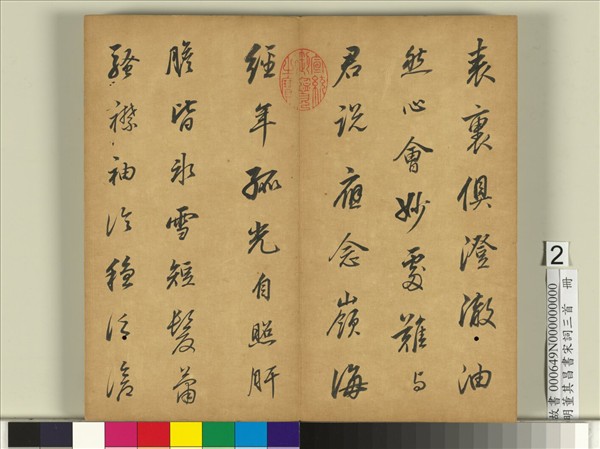 表裏俱澄澈油
然心會妙處難与
君説應念嶺海
經年孤光自照肝
膽皆氷雪短髮蕭
騷襟袖冷穩泛滄
2
故書 000649N000000000
明董其昌書宋詞三首 冊